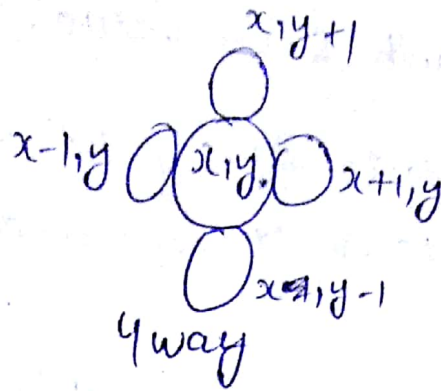 x,y+1
x-1,y
x,y.
x+1,y
x,y-1
4 way